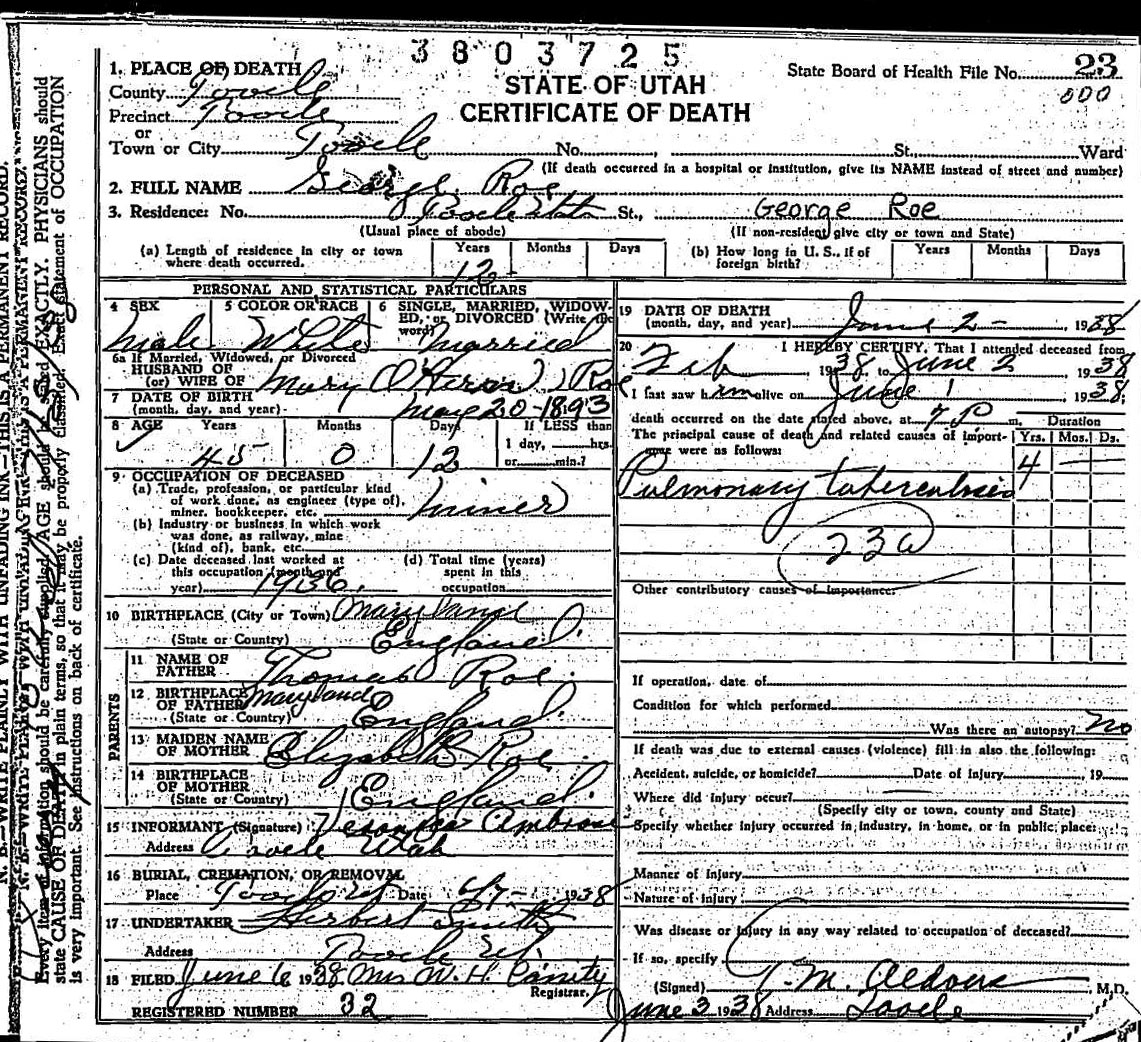 3803725
23
000
STATE OF UTAH
CERTIFICATE OF DEATH
State Board of Health File No.
1. PLACE OF DEATH
County Tooele
Precinct Tooele
or
Town or City Tooele No. St., Ward
(If death occurred in a hospital or institution, give its NAME instead of street and number)
2. FULL NAME George Roe
3. Residence: No. Tooele St., George Roe
(Usual place of abode) (If non-resident give city or town and State)
(a) Length of residence in city or town where death occurred. Years 12 Months Days
(b) How long in U. S., if of foreign birth? Years Months Days
PERSONAL AND STATISTICAL PARTICULARS
4 SEX Male
5 COLOR OR RACE White
6 SINGLE, MARRIED, WIDOWED, or DIVORCED (Write the word) Married
6a If Married, Widowed, or Divorced
HUSBAND OF
(or) WIFE OF Mary Roe
7 DATE OF BIRTH
(month, day, and year) May 20-1893
8 AGE Years 45 Months 0 Days 12 If LESS than
1 day, hrs.
or min.?
9 OCCUPATION OF DECEASED
(a) Trade, profession, or particular kind
of work done, as engineer (type of),
miner, bookkeeper, etc. Miner
(b) Industry or business in which work
was done, as railway, mine
(kind of), bank, etc.
(c) Date deceased last worked at
this occupation (month and
year) 1936.
(d) Total time (years)
spent in this
occupation
10 BIRTHPLACE (City or Town) Maryland
(State or Country) England.
PARENTS
11 NAME OF
FATHER Thomas Roe.
12 BIRTHPLACE
OF FATHER Maryland
(State or Country) England.
13 MAIDEN NAME
OF MOTHER Elizabeth Roe.
14 BIRTHPLACE
OF MOTHER
(State or Country) England.
15 INFORMANT (Signature) Ambrose
Address Tooele Utah
16 BURIAL, CREMATION, OR REMOVAL
Place Tooele Date 6/7- 1938
17 UNDERTAKER Herbert Smith
Address Tooele Ut.
18 FILED June 6 1938 Mrs W. H.
Registrar.
REGISTERED NUMBER 32
19 DATE OF DEATH
(month, day, and year) June 2- 1938
20 I HEREBY CERTIFY, That I attended deceased from
Feb 1938 to June 2 1938
I last saw him alive on June 1 1938;
death occurred on the date stated above, at 7 P m.
Duration
The principal cause of death and related causes of importance were as follows:
Yrs. Mos. Ds.
Pulmonary tuberculosis 4
23a
Other contributory causes of importance:
If operation, date of
Condition for which performed
Was there an autopsy? no
If death was due to external causes (violence) fill in also the following:
Accident, suicide, or homicide? Date of Injury 19
Where did injury occur?
(Specify city or town, county and State)
Specify whether injury occurred in industry, in home, or in public place:
Manner of injury
Nature of injury
Was disease or injury in any way related to occupation of deceased?
If so, specify
(Signed) M.D.
June 3 1938 Address Tooele
N. B.—WRITE PLAINLY WITH UNFADING INK—THIS IS A PERMANENT RECORD.
Every item of information should be carefully supplied. AGE should be stated EXACTLY. PHYSICIANS should
state CAUSE OF DEATH in plain terms, so that it may be properly classified. Exact statement of OCCUPATION
is very important. See instructions on back of certificate.